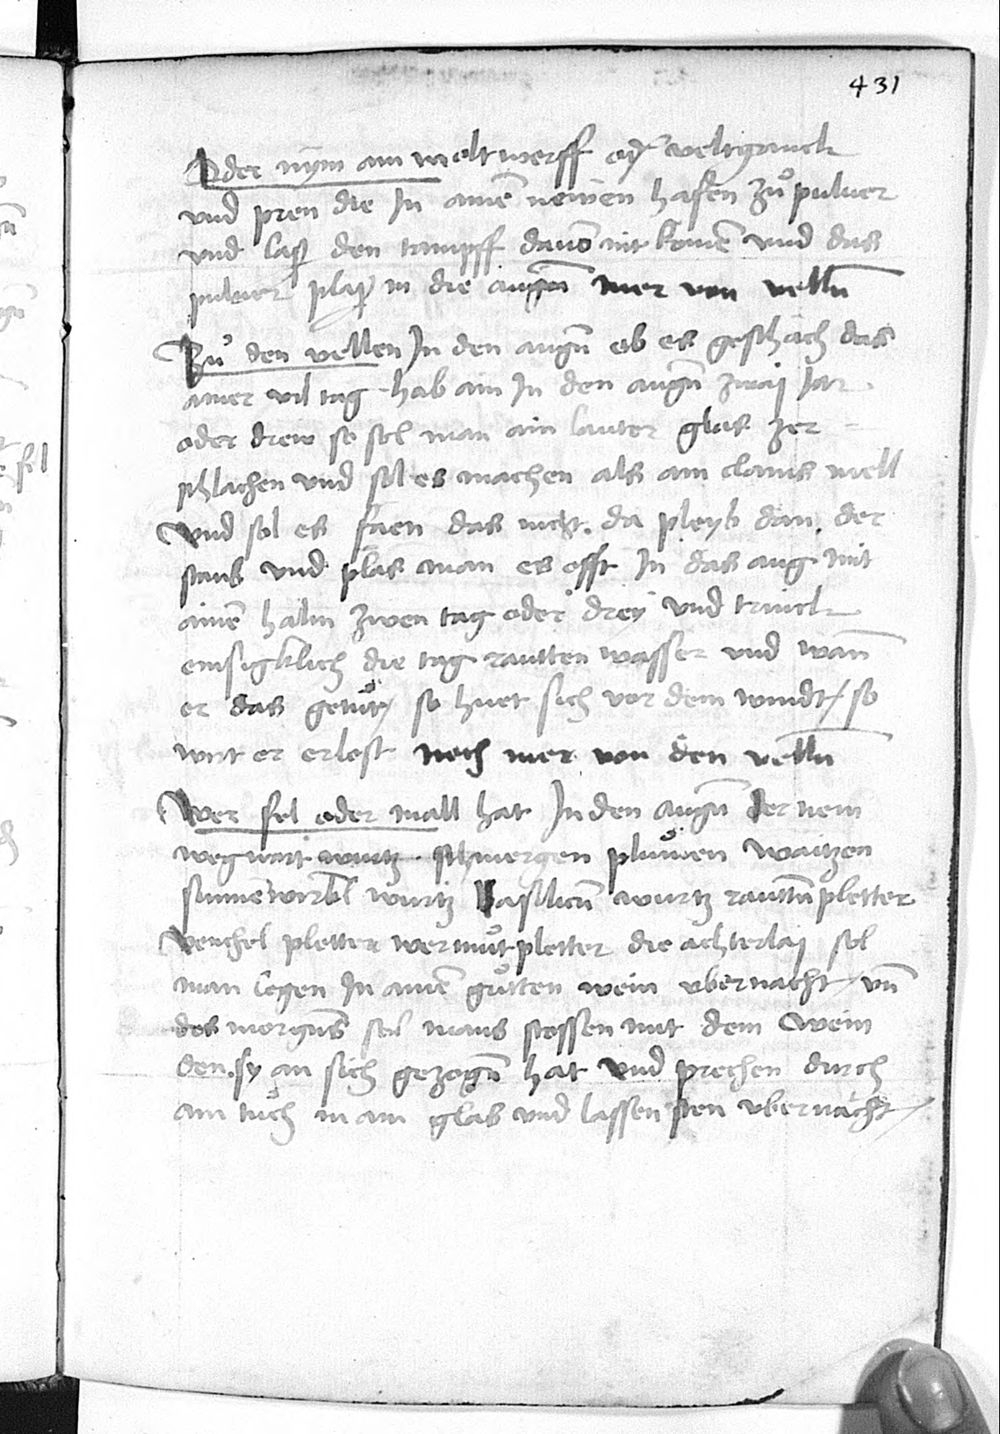 431
Oder nym ain moltwerff od' veltgrauck
vnd pren die In aine͂ newen hafen zů puluer
vnd laß den tampff dauo͂ nit kome͂ vnd das
puluer plaß in die augn͂ mer von velln͂
Zů den vellen In den augn͂ ob es geschäch das
ainer vil tag hab ain In den augn͂ zwaj Jar
oder drew so sol man ain lauter glas zer
schlachen vnd sol es machen als ain clains mell
Vnd sol es säen das nicht da pleyb dan der
staub vnd plas man es offt In das aug mit
aine͂ halm zwen tag oder drey vnd trinck
emsigklich die tag rautten wasser vnd wan͂
er das getůt / so huet sich vor dem windt / so
wirt er erlost noch mer von den velln͂
Wer fel oder mall hat In den augn͂ der nem
wegwart wurtz schwergen plůmen waitzen
sunne͂wirbl wurtz basilicu͂ wurtz rauttn͂ pletter
venchel pletter wermůt pletter die achterlaj sol
man legen In aine͂ gůtten wein vbernacht / vn͂
des morgn͂s sol mans stossen mit dem wein
den sy an sich gezogn͂ hat vnd prechen durch
ain tuch in ain glas vnd lassen sten vbernacht /